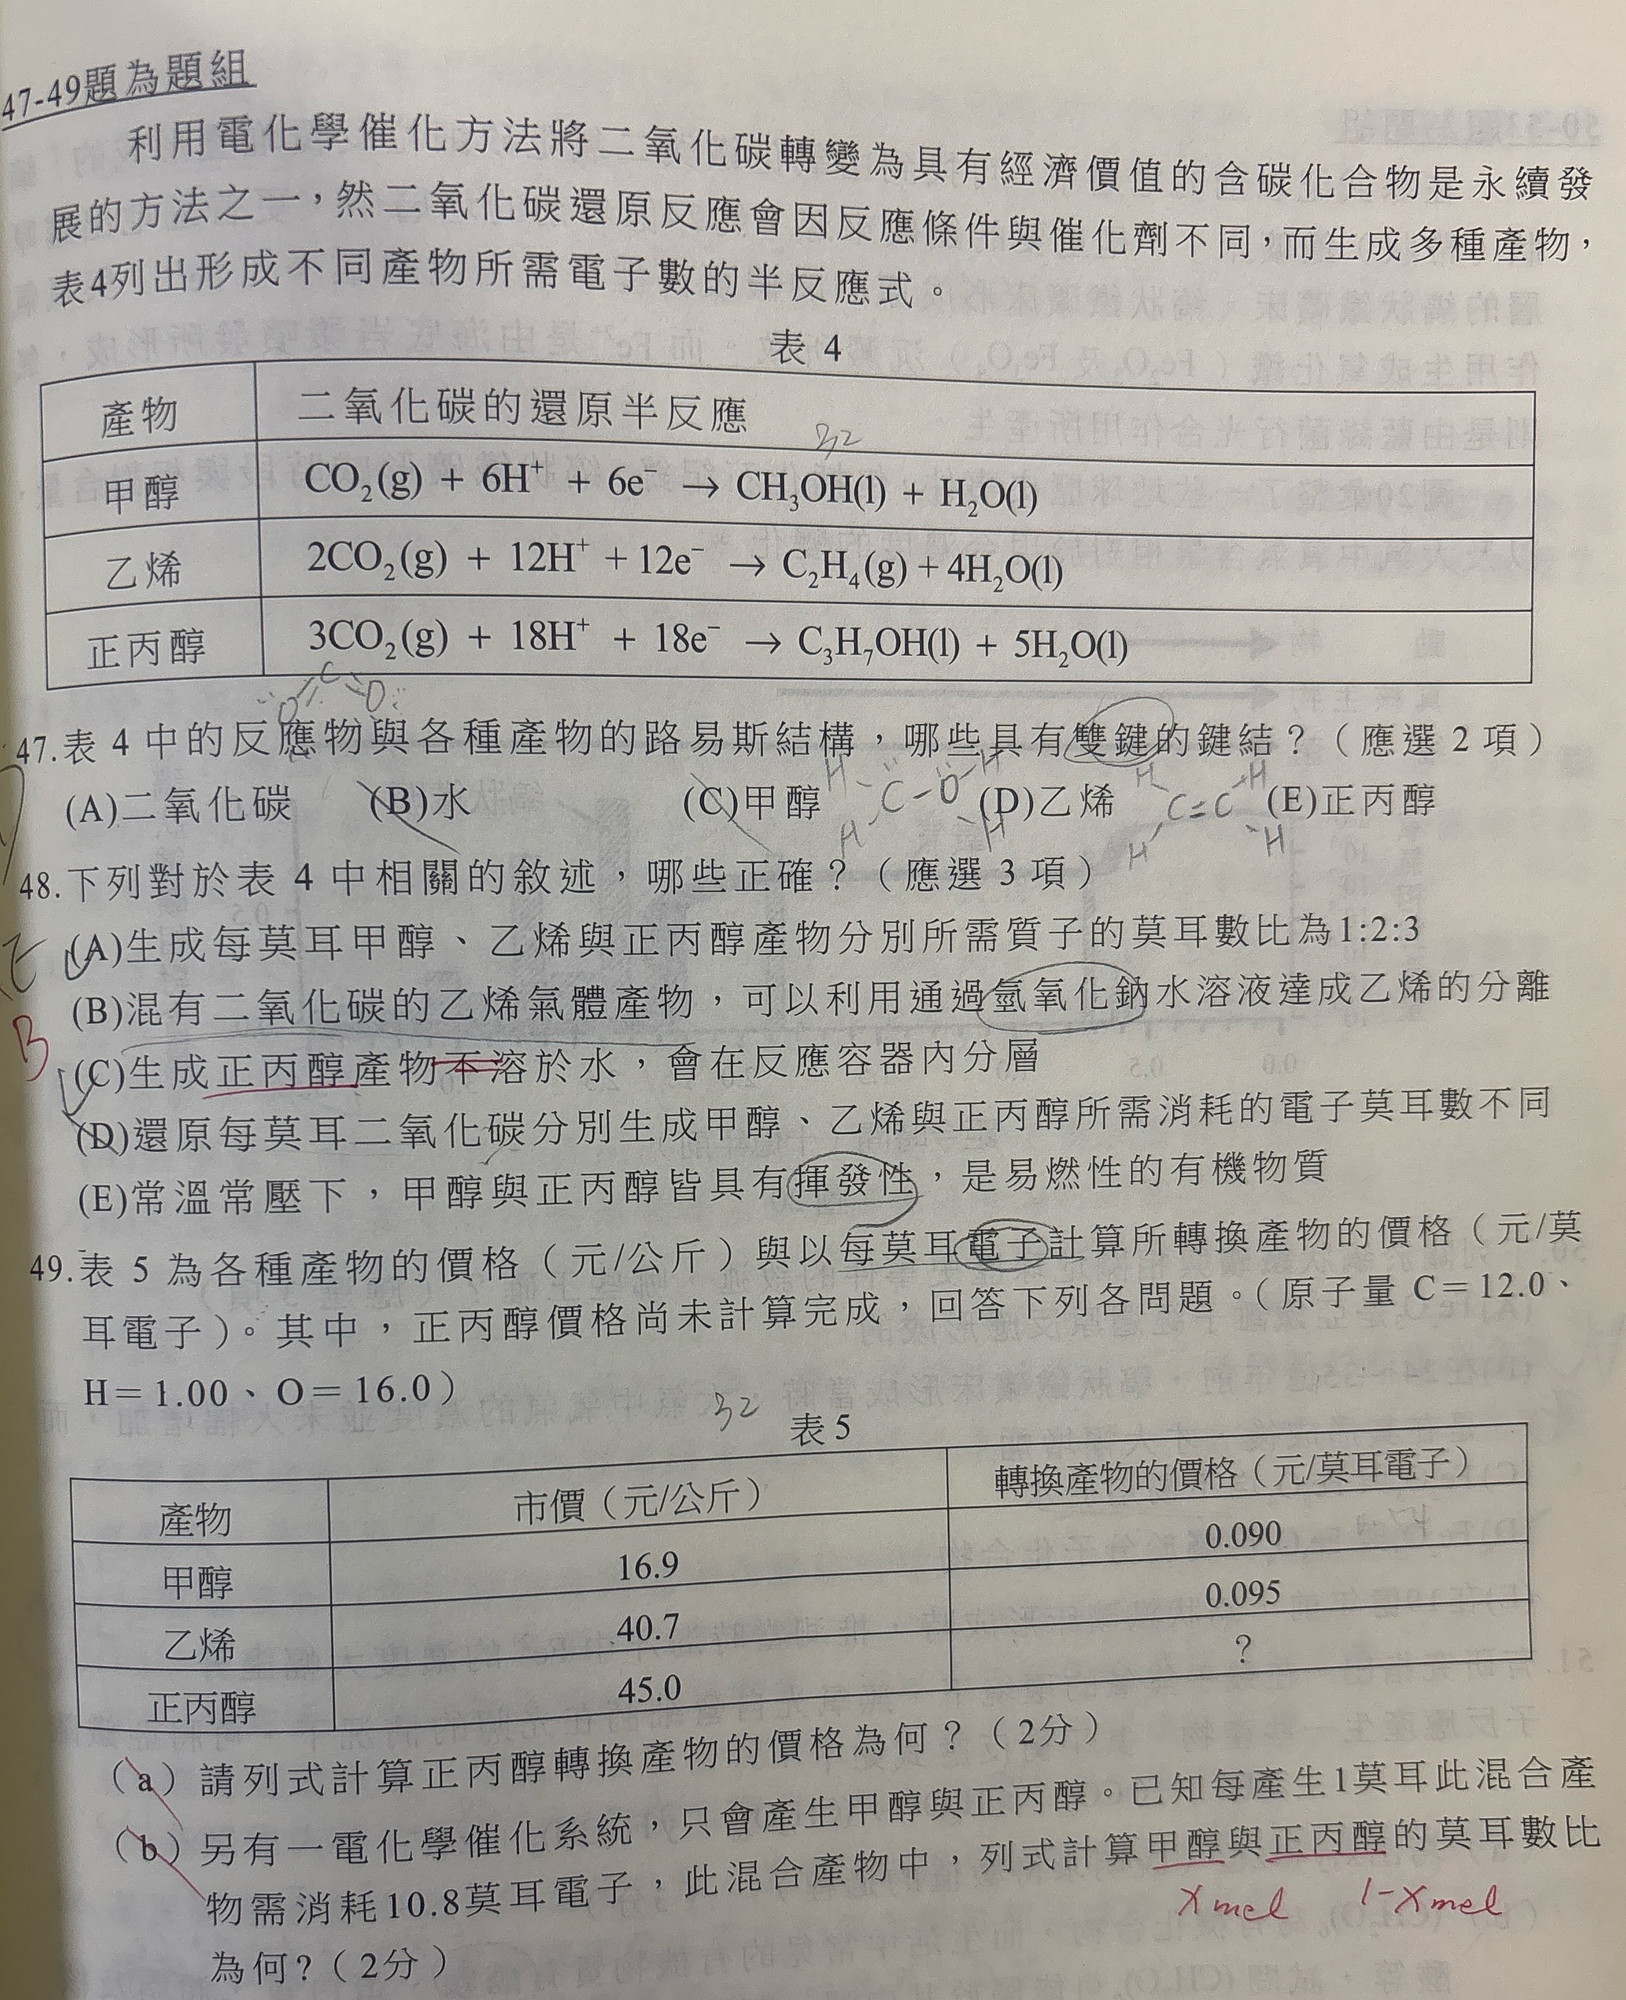 47-49題為題組
利用電化學催化方法將二氧化碳轉變為具有經濟價值的含碳化合物是永續發
展的方法之一，然二氧化碳還原反應會因反應條件與催化劑不同，而生成多種產物，
表4列出形成不同產物所需電子數的半反應式。
表 4
產物 二氧化碳的還原半反應
32
甲醇 CO₂(g) + 6H⁺ + 6e⁻ → CH₃OH(l) + H₂O(l)
乙烯 2CO₂(g) + 12H⁺ + 12e⁻ → C₂H₄(g) + 4H₂O(l)
正丙醇 3CO₂(g) + 18H⁺ + 18e⁻ → C₃H₇OH(l) + 5H₂O(l)
O=C=O
47.表 4 中的反應物與各種產物的路易斯結構，哪些具有雙鍵的鍵結？（應選 2 項）
(A)二氧化碳 (B)水 (C)甲醇 (D)乙烯 (E)正丙醇
H H C-O H H
H H C=C H H
48.下列對於表 4 中相關的敘述，哪些正確？（應選 3 項）
(A)生成每莫耳甲醇、乙烯與正丙醇產物分別所需質子的莫耳數比為1:2:3
(B)混有二氧化碳的乙烯氣體產物，可以利用通過氫氧化鈉水溶液達成乙烯的分離
B
(C)生成正丙醇產物不溶於水，會在反應容器內分層
(D)還原每莫耳二氧化碳分別生成甲醇、乙烯與正丙醇所需消耗的電子莫耳數不同
(E)常溫常壓下，甲醇與正丙醇皆具有揮發性，是易燃性的有機物質
49.表 5 為各種產物的價格（元/公斤）與以每莫耳電子計算所轉換產物的價格（元/莫
耳電子）。其中，正丙醇價格尚未計算完成，回答下列各問題。（原子量 C＝12.0、
H＝1.00、O＝16.0）
32
表 5
產物 市價（元/公斤） 轉換產物的價格（元/莫耳電子）
甲醇 16.9 0.090
乙烯 40.7 0.095
正丙醇 45.0 ?
（a）請列式計算正丙醇轉換產物的價格為何？（2分）
（b）另有一電化學催化系統，只會產生甲醇與正丙醇。已知每產生1莫耳此混合產
物需消耗10.8莫耳電子，此混合產物中，列式計算甲醇與正丙醇的莫耳數比
X mol 1-X mol
為何?（2分）